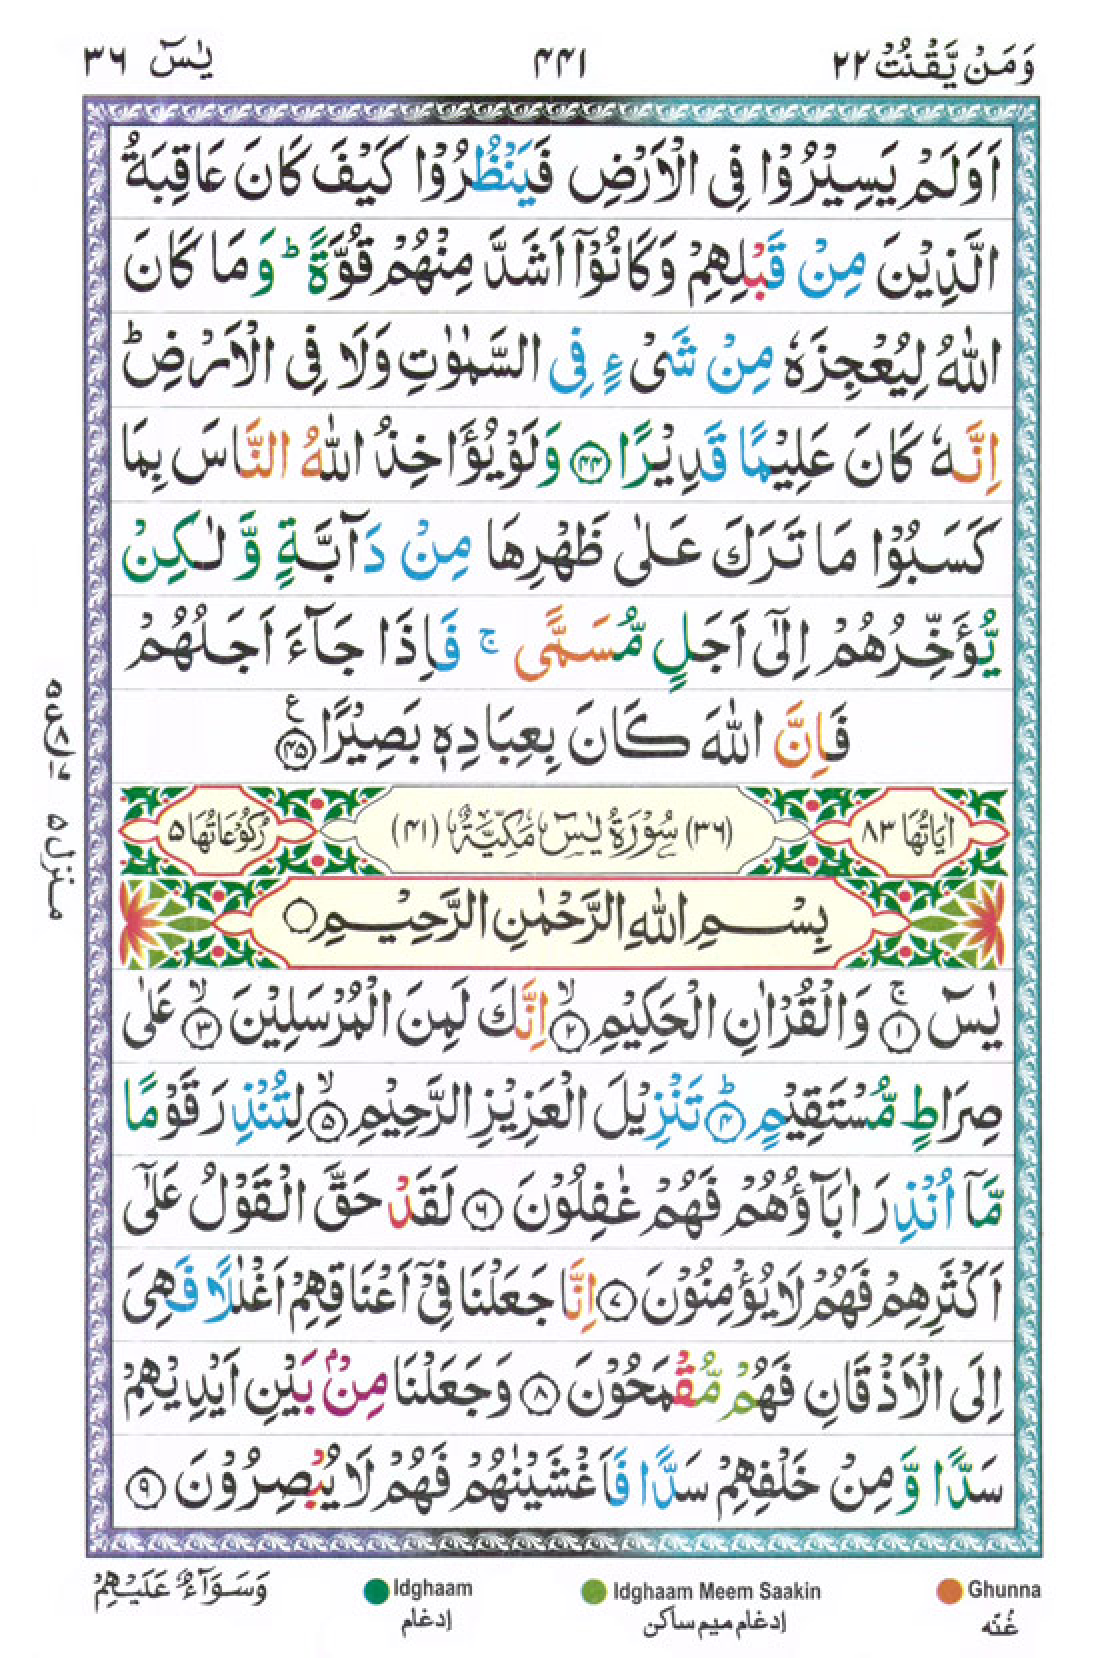 وَمَنْ يَّقْنُتْ ٢٢ ٤٤١ يٰسٓ ٣٦
اَوَلَمْ يَسِيْرُوْا فِى الْاَرْضِ فَيَنْظُرُوْا كَيْفَ كَانَ عَاقِبَةُ
الَّذِيْنَ مِنْ قَبْلِهِمْ وَكَانُوْٓا اَشَدَّ مِنْهُمْ قُوَّةً ؕ وَمَا كَانَ
اللّٰهُ لِيُعْجِزَهٗ مِنْ شَىْءٍ فِى السَّمٰوٰتِ وَلَا فِى الْاَرْضِ ؕ
اِنَّهٗ كَانَ عَلِيْمًا قَدِيْرًا ﴿٤٤﴾ وَلَوْ يُؤَاخِذُ اللّٰهُ النَّاسَ بِمَا
كَسَبُوْا مَا تَرَكَ عَلٰى ظَهْرِهَا مِنْ دَآبَّةٍ وَّلٰكِنْ
يُّؤَخِّرُهُمْ اِلٰٓى اَجَلٍ مُّسَمًّى ۚ فَاِذَا جَآءَ اَجَلُهُمْ
فَاِنَّ اللّٰهَ كَانَ بِعِبَادِهٖ بَصِيْرًا ﴿٤٥﴾ ع
اٰيَاتُهَا ٨٣ (٣٦) سُوْرَةُ يٰسٓ مَكِّيَّةٌ (٤١) رُكُوْعَاتُهَا ٥
بِسْمِ اللّٰهِ الرَّحْمٰنِ الرَّحِيْمِ
يٰسٓ ۚ ﴿١﴾ وَالْقُرْاٰنِ الْحَكِيْمِ ۙ ﴿٢﴾ اِنَّكَ لَمِنَ الْمُرْسَلِيْنَ ۙ ﴿٣﴾ عَلٰى
صِرَاطٍ مُّسْتَقِيْمٍ ؕ ﴿٤﴾ تَنْزِيْلَ الْعَزِيْزِ الرَّحِيْمِ ۙ ﴿٥﴾ لِتُنْذِرَ قَوْمًا
مَّآ اُنْذِرَ اٰبَآؤُهُمْ فَهُمْ غٰفِلُوْنَ ﴿٦﴾ لَقَدْ حَقَّ الْقَوْلُ عَلٰٓى
اَكْثَرِهِمْ فَهُمْ لَا يُؤْمِنُوْنَ ﴿٧﴾ اِنَّا جَعَلْنَا فِىْٓ اَعْنَاقِهِمْ اَغْلٰلًا فَهِىَ
اِلَى الْاَذْقَانِ فَهُمْ مُّقْمَحُوْنَ ﴿٨﴾ وَجَعَلْنَا مِنْۢ بَيْنِ اَيْدِيْهِمْ
سَدًّا وَّمِنْ خَلْفِهِمْ سَدًّا فَاَغْشَيْنٰهُمْ فَهُمْ لَا يُبْصِرُوْنَ ﴿٩﴾
منزل ٥
وَسَوَآءٌ عَلَيْهِمْ
Idghaam
ادغام
Idghaam Meem Saakin
ادغام میم ساکن
Ghunna
غُنّه